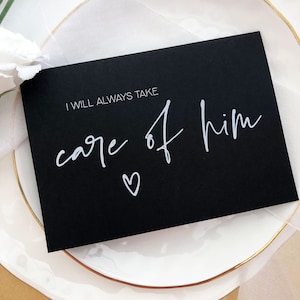 I WILL ALWAYS TAKE
care of him